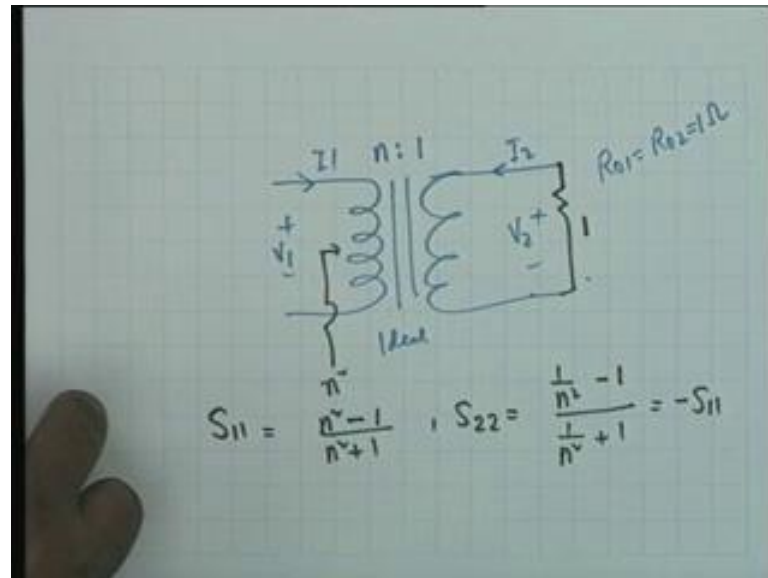 I1 n:1 I2 R01 = R02 = 1Ω
V1 + - V2 + - 1
Ideal
n²
S11 = (n² - 1)/(n² + 1) , S22 = (1/n² - 1)/(1/n² + 1) = -S11